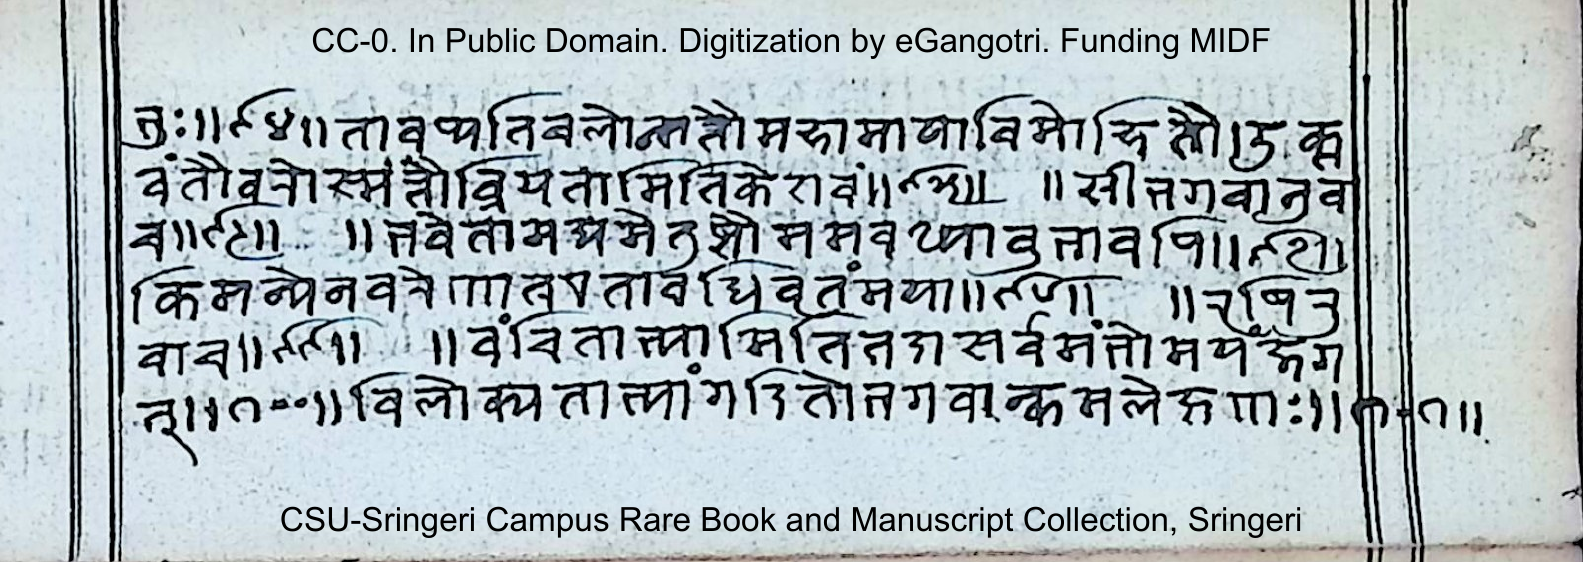 CC-0. In Public Domain. Digitization by eGangotri. Funding MIDF
भुः॥९४॥तावप्यतिबलोन्मत्तौमहामायाविमोहितौ।उक्त
वंतौवरोस्मत्तोव्रियतामितिकेशवं॥९५॥ ॥श्रीभगवानुवा
च॥९६॥ ॥भवेतामद्यमेतुष्टौममवध्यावुभावपि॥९७॥
किमन्येनवरेणात्रएतावद्धिवृतंमया॥९८॥ ॥ऋषिरु
वाच॥९९॥ ॥वंचिताभ्यामितितदासर्वमंभोमयंजग
त्॥१००॥विलोक्यताभ्यांगदितोभगवान्कमलेक्षणः॥१०१॥
CSU-Sringeri Campus Rare Book and Manuscript Collection, Sringeri